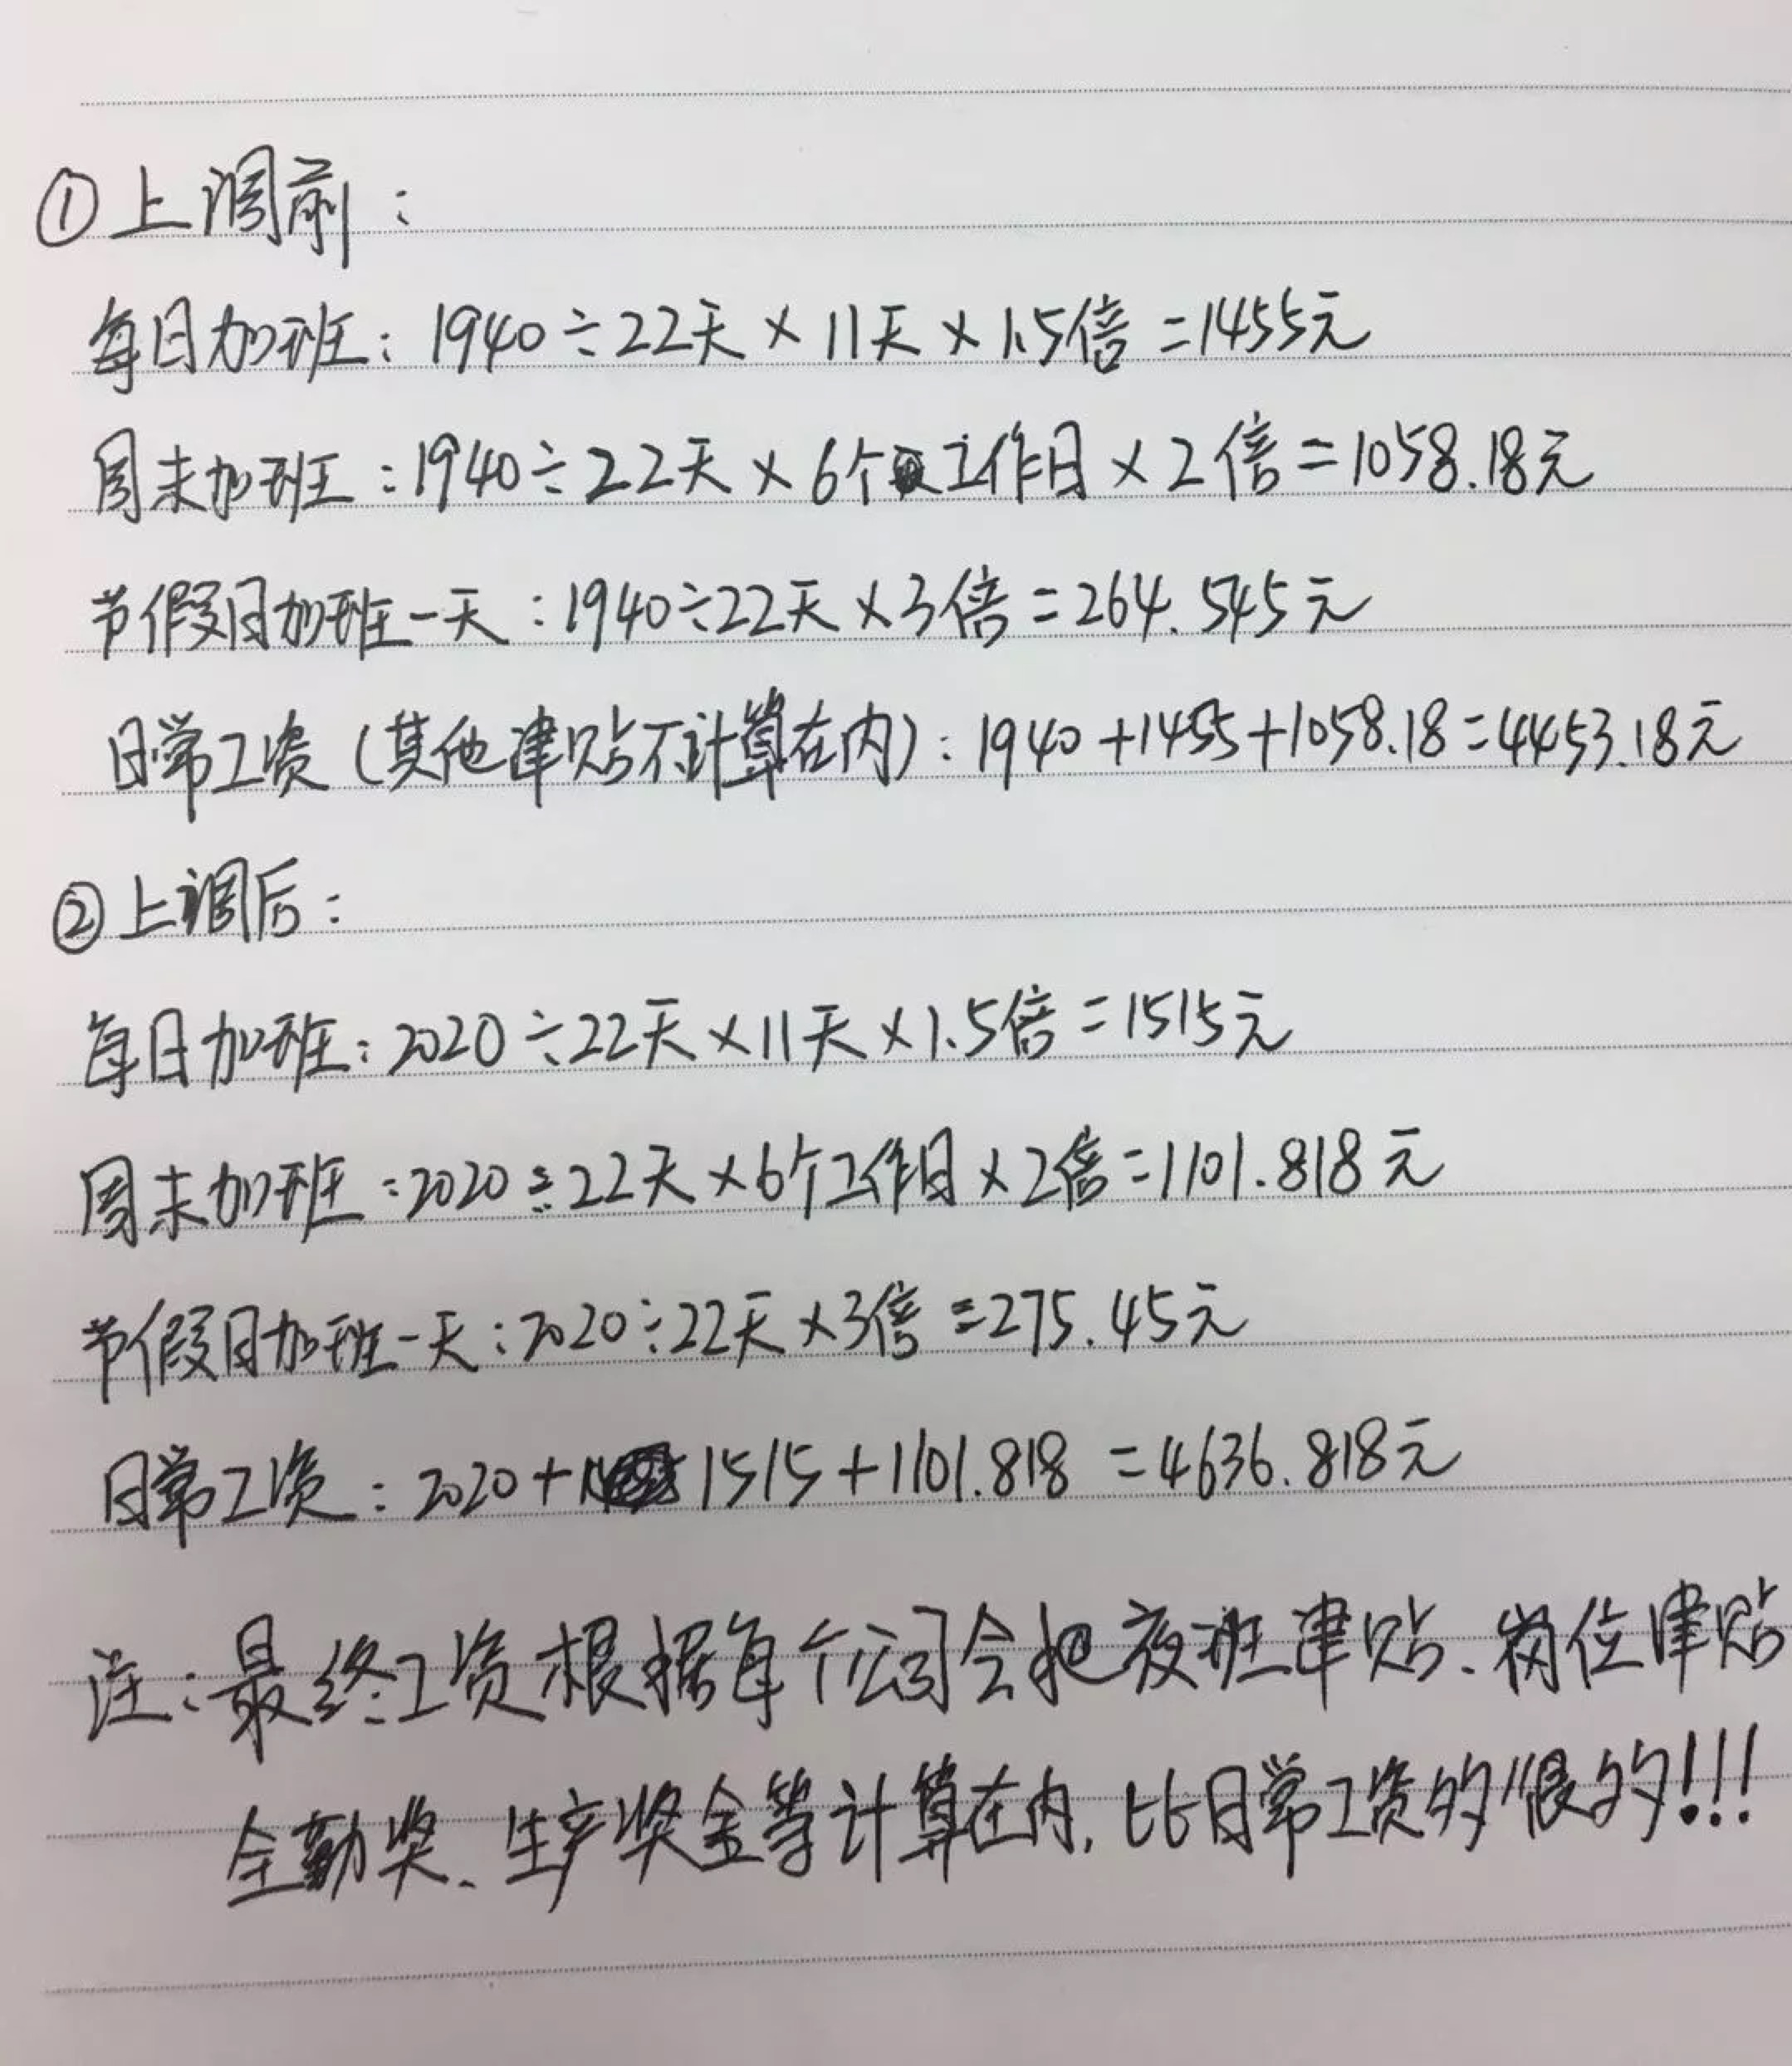 ①上调前：
每日加班：1940÷22天×11天×1.5倍=1455元
周末加班：1940÷22天×6个工作日×2倍=1058.18元
节假日加班一天：1940÷22天×3倍=264.545元
日常工资（其他津贴不计算在内）：1940+1455+1058.18=4453.18元
②上调后：
每日加班：2020÷22天×11天×1.5倍=1515元
周末加班：2020÷22天×6个工作日×2倍=1101.818元
节假日加班一天：2020÷22天×3倍=275.45元
日常工资：2020+1515+1101.818=4636.818元
注：最终工资根据每个公司会把夜班津贴、岗位津贴
全勤奖、生产奖金等计算在内，比日常工资多很多!!!